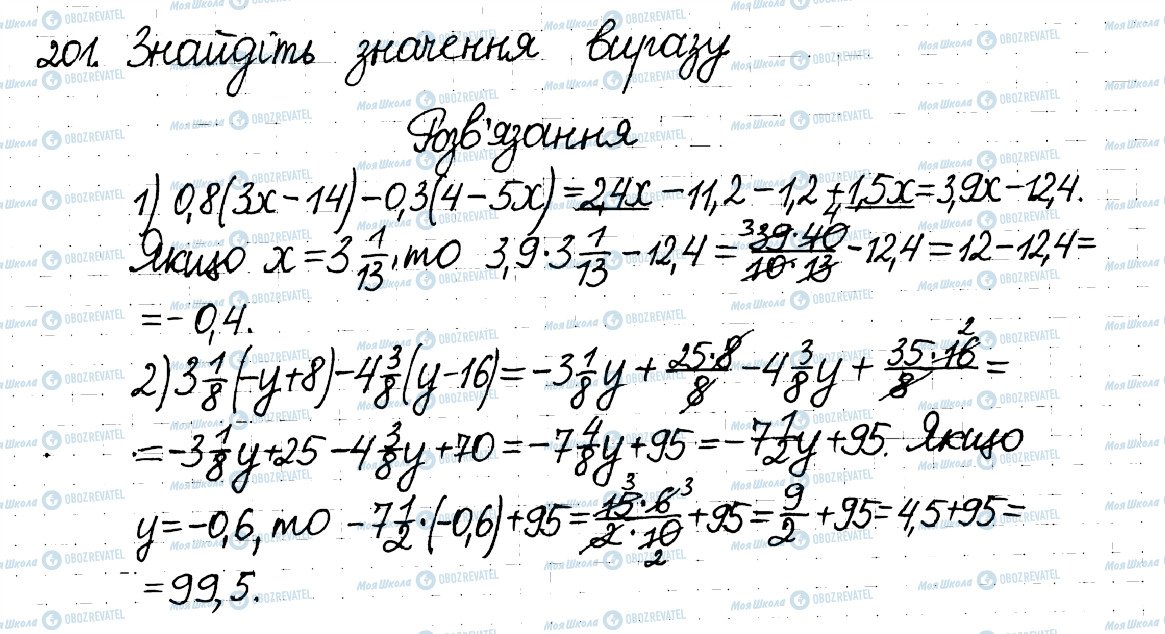 201. Знайдіть значення виразу
Розв'язання
1) 0,8(3x-14)-0,3(4-5x)=2,4x-11,2-1,2+1,5x=3,9x-12,4.
Якщо x=3 1/13, то 3,9·3 1/13-12,4= 3 39·40 4/10·13-12,4=12-12,4=
=-0,4.
2) 3 1/8(-y+8)-4 3/8(y-16)=-3 1/8y+ 25·8/8-4 3/8y+ 35·16 2/8=
=-3 1/8y+25-4 3/8y+70=-7 4/8y+95=-7 1/2y+95. Якщо
y=-0,6, то -7 1/2·(-0,6)+95= 15 3·6 3/2·10 2+95= 9/2+95=4,5+95=
=99,5.